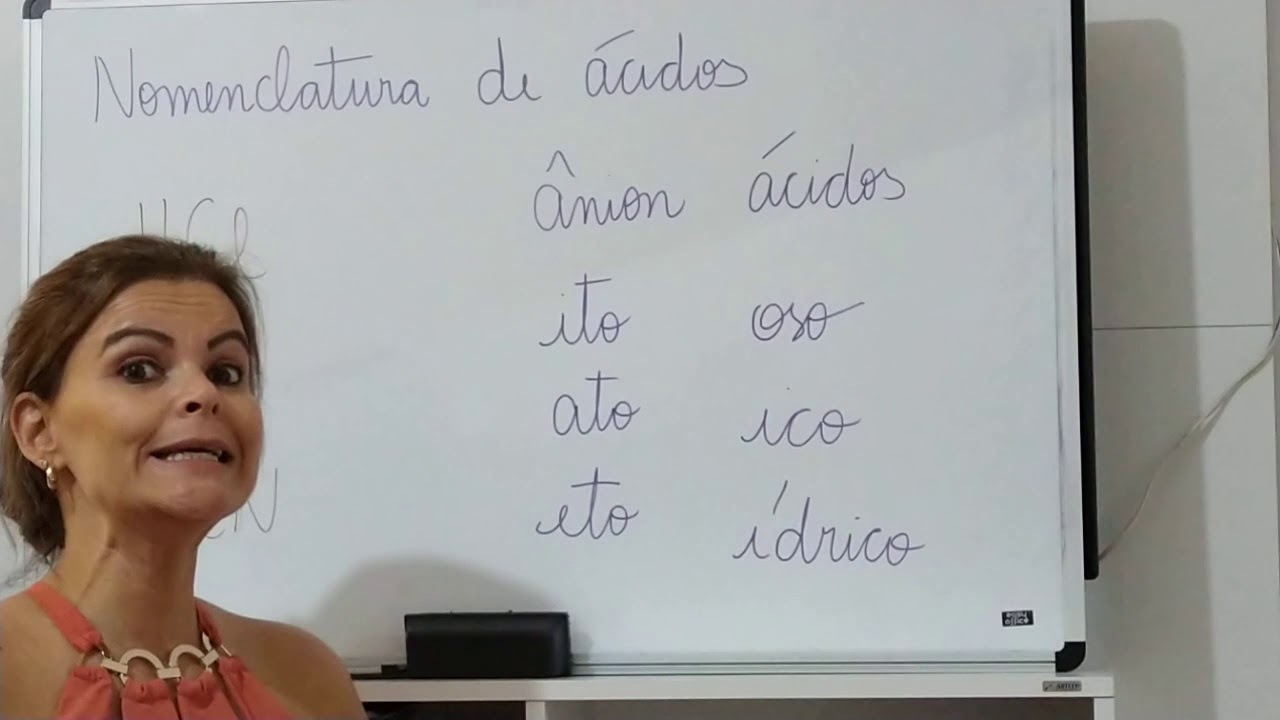 Nomenclatura de ácidos
ânion ácidos
HCl
ito oso
ato ico
eto ídrico
CN